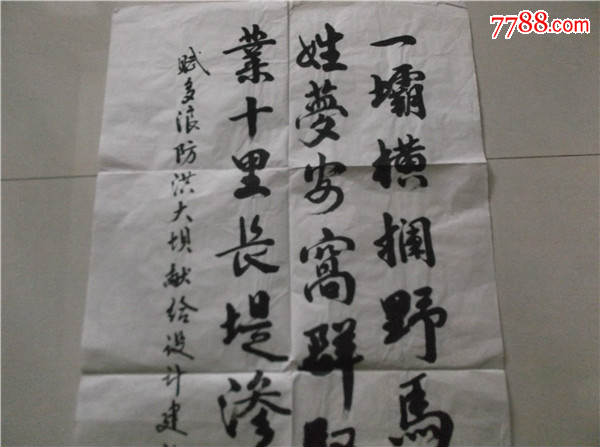 一壩横攔野馬
姓夢安窩群
業十里長堤滲
賦多浪防洪大坝献给设计建
7788.com